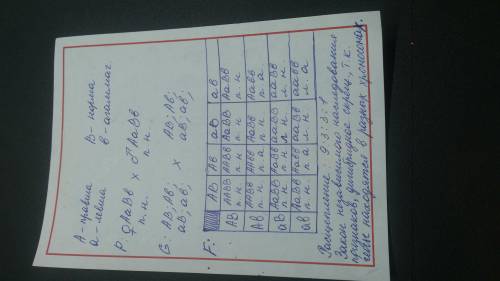 А - правша В - норма
а - левша в - агаммаг
Р: ♀АаВв х ♂АаВв
п.н. п.н.
G: АВ; Ав; х АВ; Ав;
аВ; ав; аВ; ав;
F:
АВ Ав аВ ав
АВ ААВВ ААВв АаВВ АаВв
п.н. п.н. п.н. п.н.
Ав ААВв ААвв АаВв Аавв
п.н. п.а п.н. п.а
аВ АаВВ АаВв ааВВ ааВв
п.н. п.н. л.н. л.н.
ав АаВв Аавв ааВв аавв
п.н. п.а л.н. л.а
Расщепление: 9:3:3:1
Закон независимого наследования
признаков, дигибридное скрещ, т.к.
находятся в разных хромосомах.